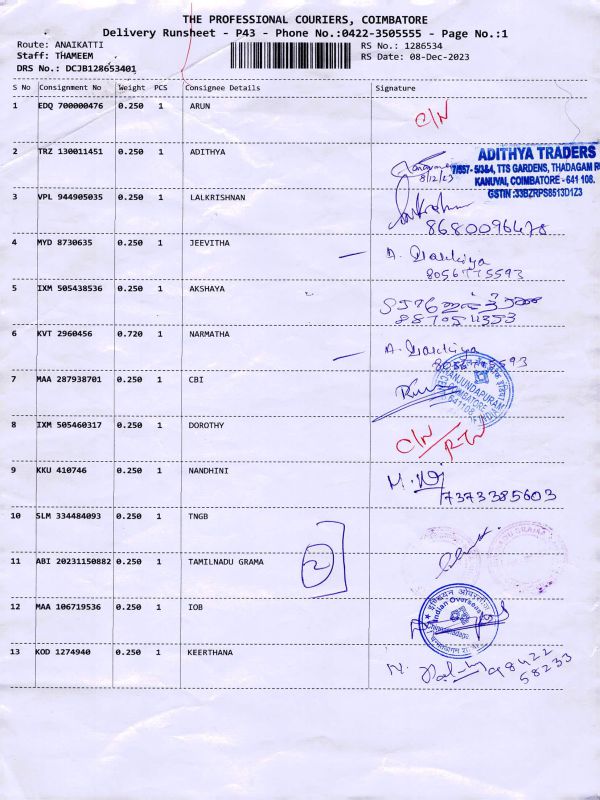 THE PROFESSIONAL COURIERS, COIMBATORE
Delivery Runsheet - P43 - Phone No.:0422-3505555 - Page No.:1
Route: ANAIKATTI RS No.: 1286534
Staff: THAMEEM RS Date: 08-Dec-2023
DRS No.: DCJB128653401
S No Consignment No Weight PCS Consignee Details Signature
1 EDQ 700000476 0.250 1 ARUN C/N
2 TRZ 130011451 0.250 1 ADITHYA
8/12/23
ADITHYA TRADERS
7/657 - 5/3&4, TTS GARDENS, THADAGAM
KANUVAI, COIMBATORE - 641 108.
GSTIN :33BZRPS8513D1Z3
3 VPL 944905035 0.250 1 LALKRISHNAN
8680096478
4 MYD 8730635 0.250 1 JEEVITHA
8056775593
5 IXM 505438536 0.250 1 AKSHAYA
6 KVT 2960456 0.720 1 NARMATHA
8056775593
7 MAA 287938701 0.250 1 CBI
NANJUNDAPURAM
COIMBATORE
641108
8 IXM 505460317 0.250 1 DOROTHY C/N
9 KKU 410746 0.250 1 NANDHINI
7373385603
10 SLM 334484093 0.250 1 TNGB
11 ABI 20231150882 0.250 1 TAMILNADU GRAMA 2
12 MAA 106719536 0.250 1 IOB
Indian Overseas
13 KOD 1274940 0.250 1 KEERTHANA
98422
58233